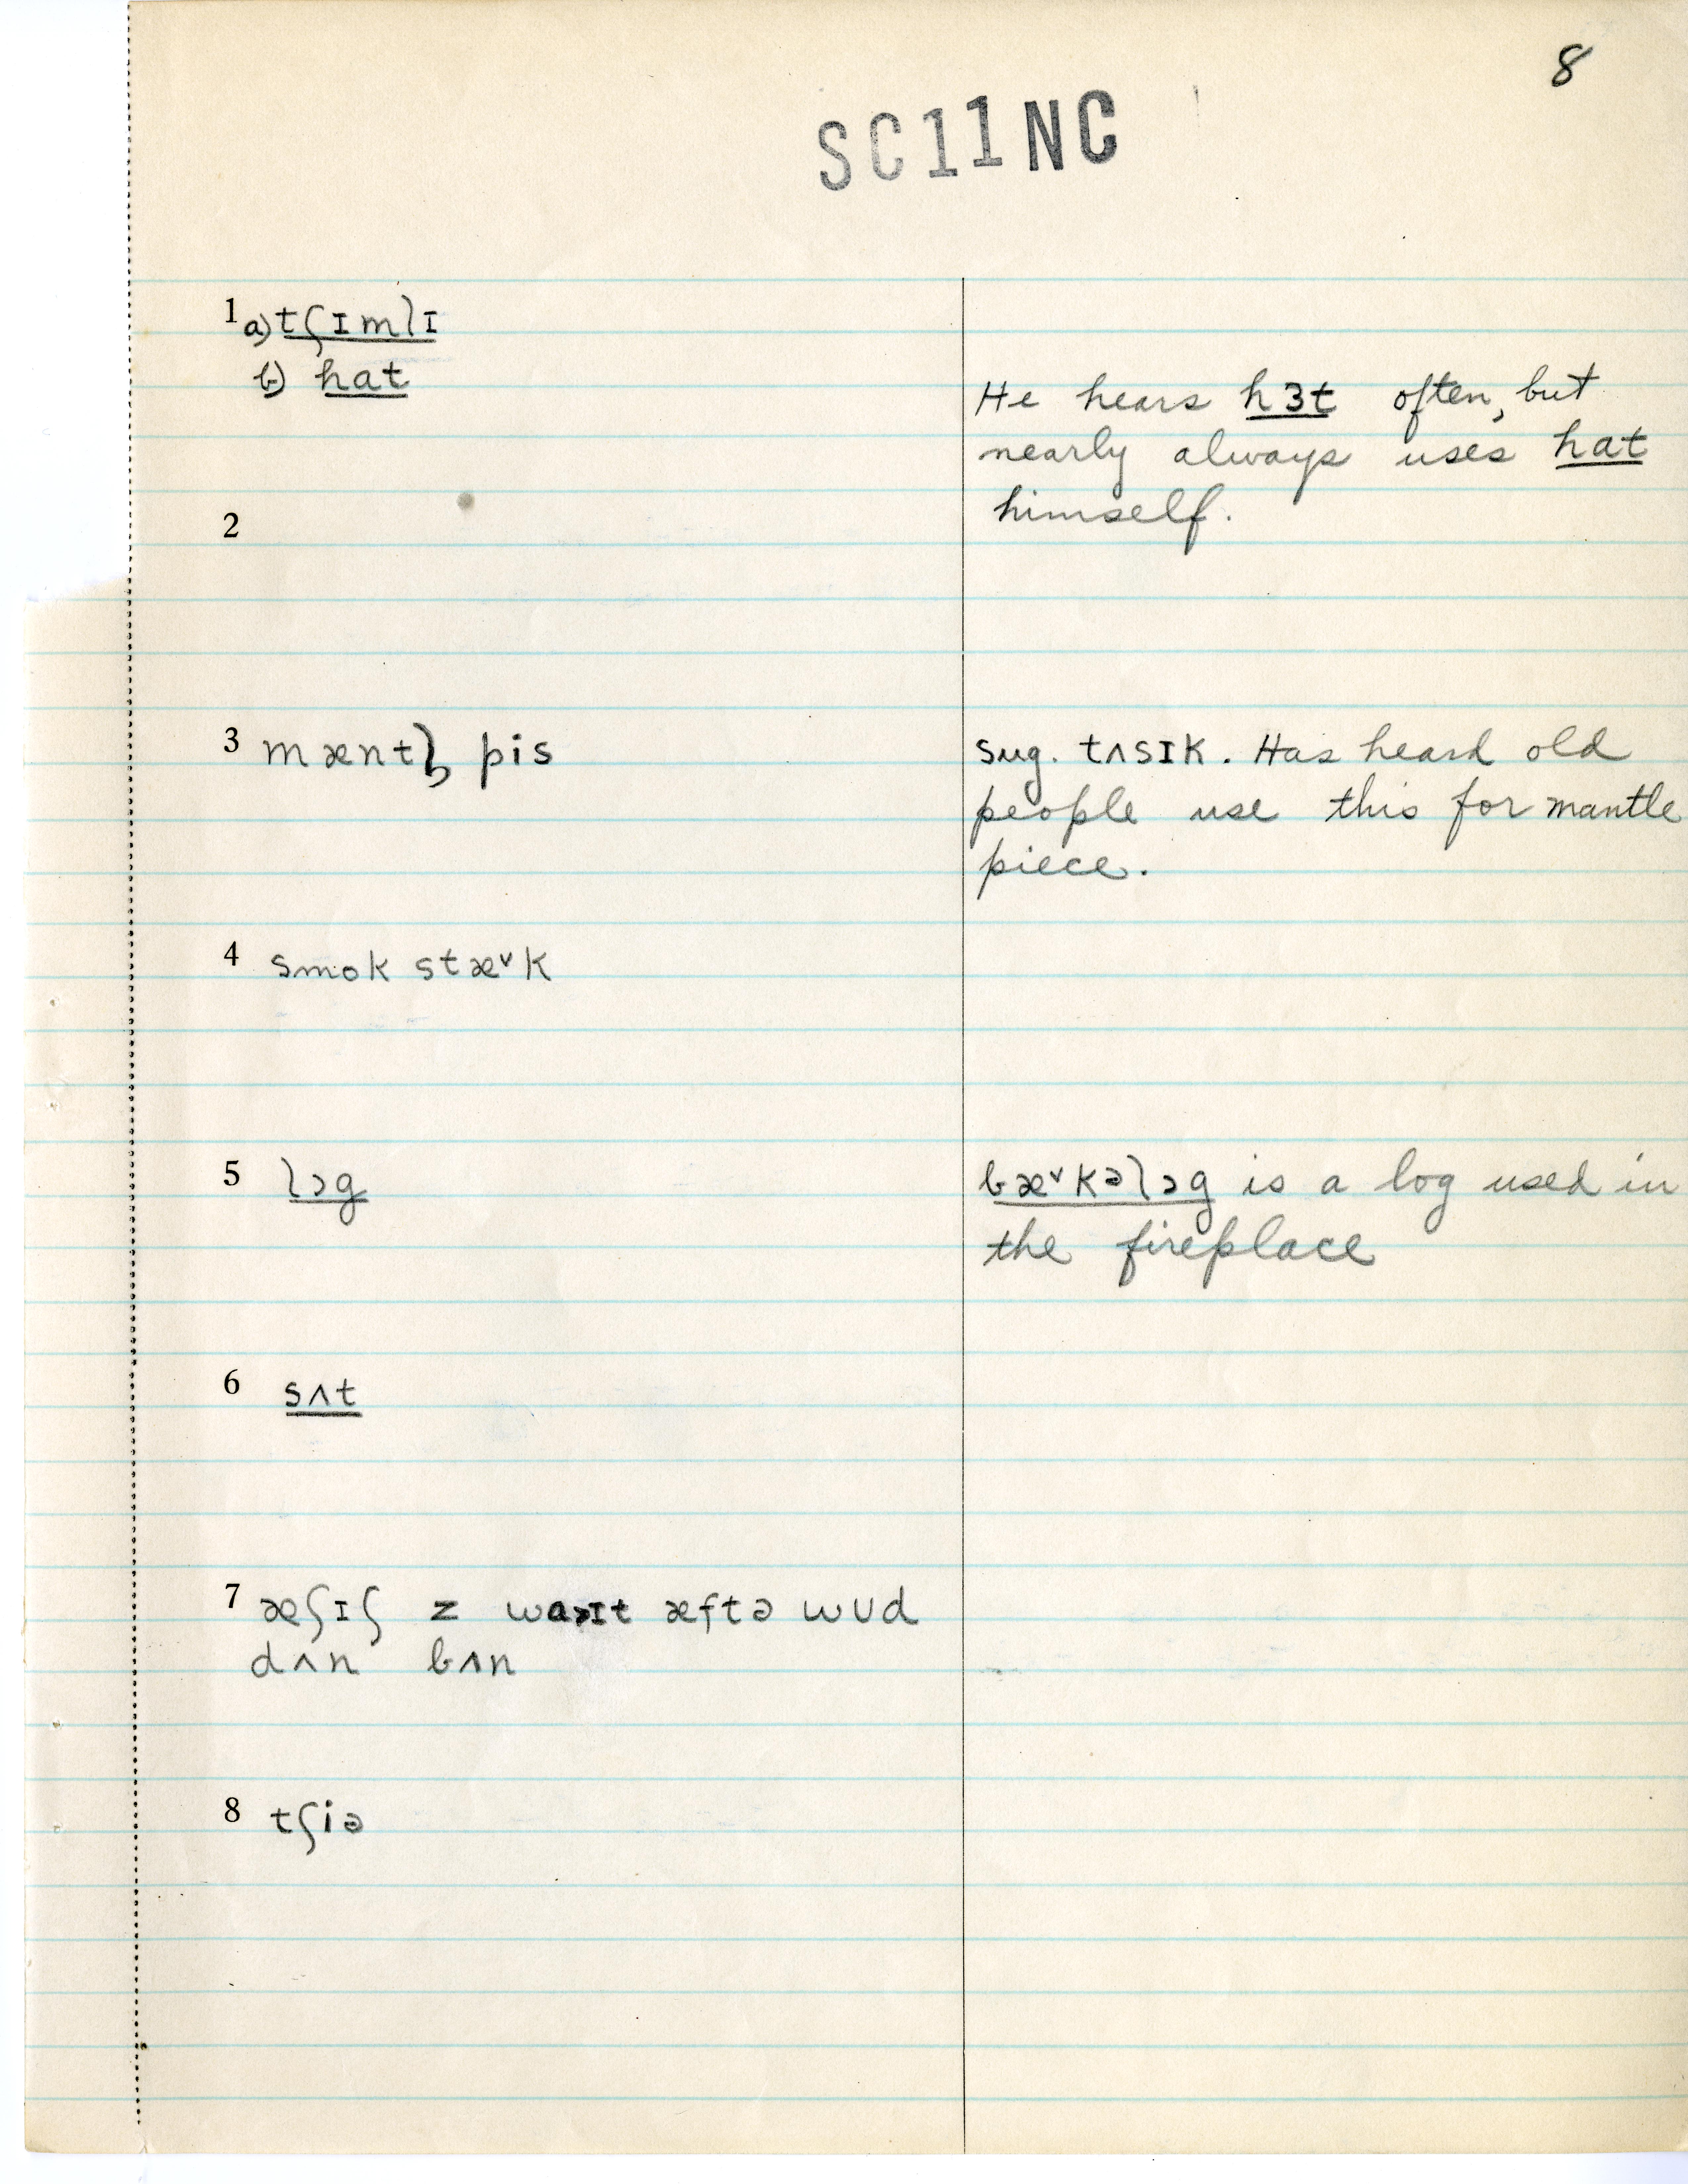 8
SC11NC
1 a) tʃɪmlɪ
b) hat
He hears hɜt often, but
nearly always uses hat
himself.
2
3 mæntl̩ pis
sug. tʌsɪk. Has heard old
people use this for mantle
piece.
4 smok stæ˅k
5 lɔg
bæ˅kəlɔg is a log used in
the fireplace
6 sʌt
7 æʃɪʃ z waɪt æftə wʊd
dʌn bʌn
8 tʃiə